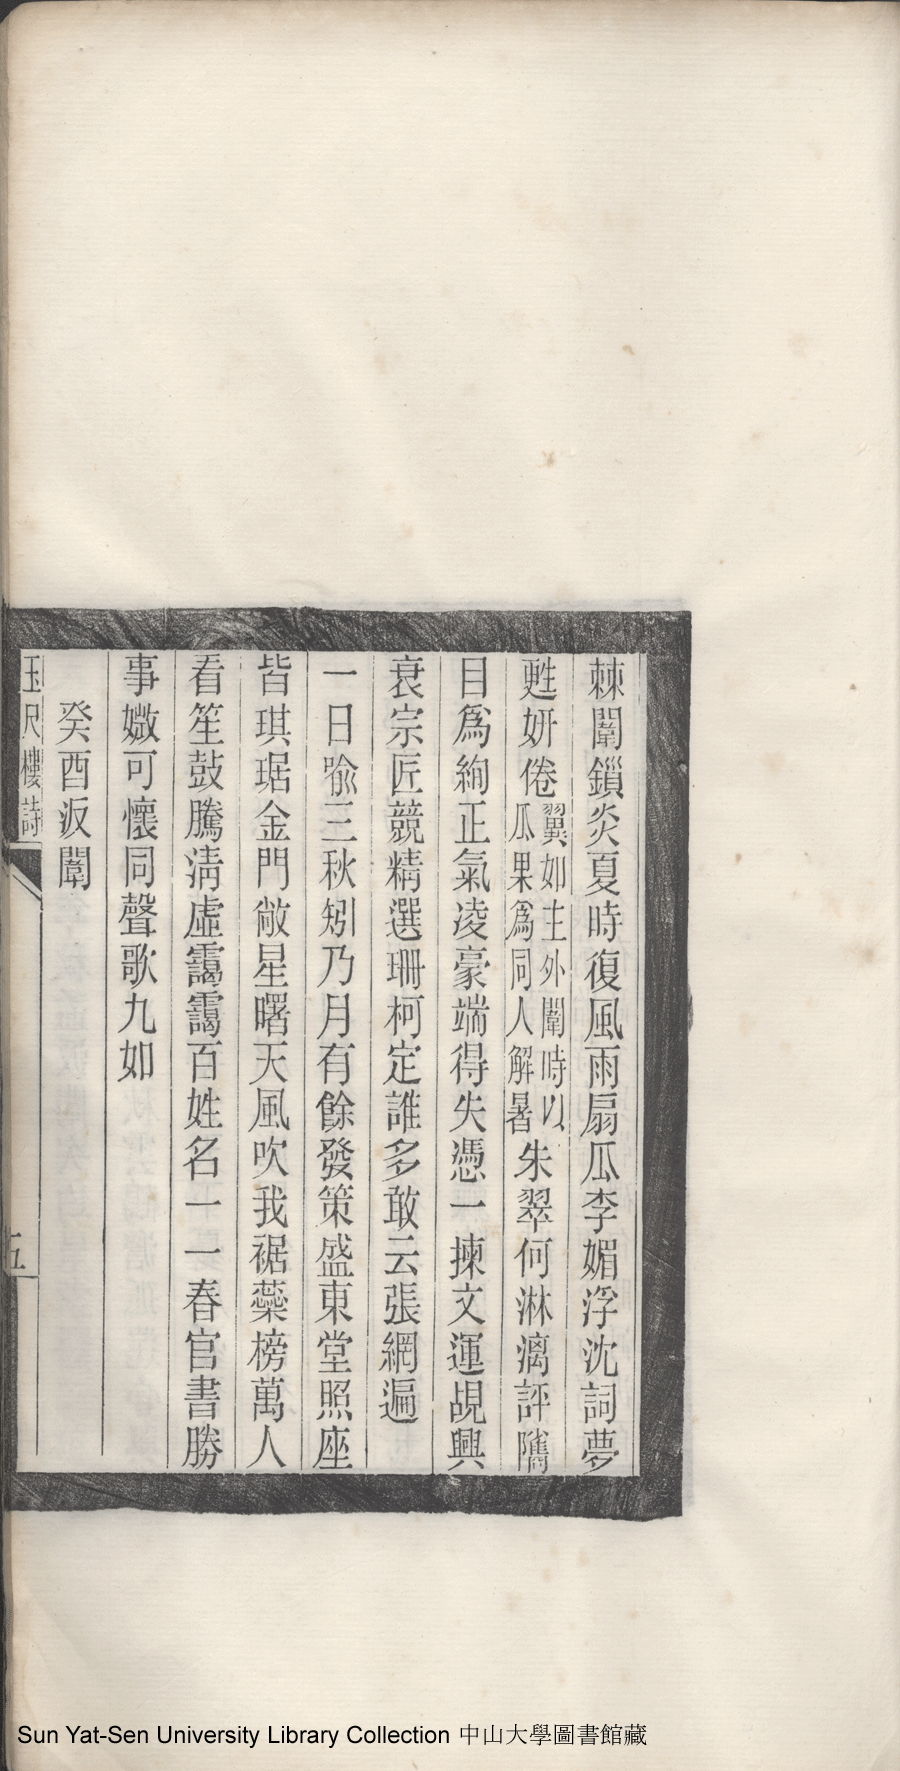 棘闈鎖炎夏時復風雨扇瓜李媚浮沈詞夢
甦妍倦翼如主外闈時以瓜果爲同人解暑朱翠何淋漓評隲
目爲絢正氣凌豪端得失憑一揀文運覘興
衰宗匠競精選珊柯定誰多敢云張網遍
一日喩三秋矧乃月有餘發策盛東堂照座
皆琪琚金門敞星曙天風吹我裾蘂榜萬人
看笙鼓騰淸虛靄靄百姓名一一春官書勝
事媺可懷同聲歌九如
癸酉返闈
玉尺樓詩
五
Sun Yat-Sen University Library Collection 中山大學圖書館藏